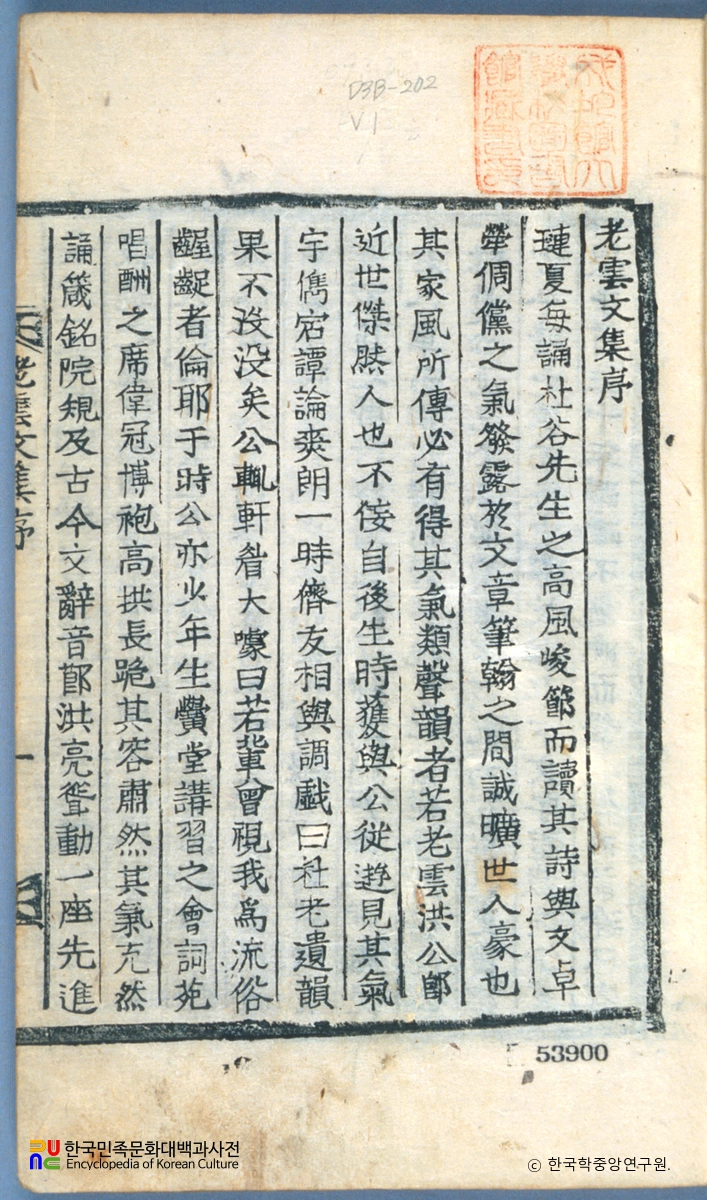 D3B-202
V1
老雲文集序
璉夏每誦杜谷先生之高風峻節而讀其詩與文卓
犖倜儻之氣發露於文章筆翰之間誠曠世人豪也
其家風所傳必有得其氣類聲韻者若老雲洪公卽
近世傑然人也不佞自後生時獲與公從遊見其氣
宇儁宕譚論爽朗一時儕友相與調戱曰杜老遺韻
果不沒沒矣公輒軒眉大噱曰若輩曾視我爲流俗
齷齪者倫耶于時公亦少年生黌堂講習之會詞苑
唱酬之席偉冠博袍高拱長跪其容肅然其氣充然
誦箴銘院規及古今文辭音節洪亮聳動一座先進
老雲文集序
一
53900
한국민족문화대백과사전
Encyclopedia of Korean Culture
© 한국학중앙연구원.